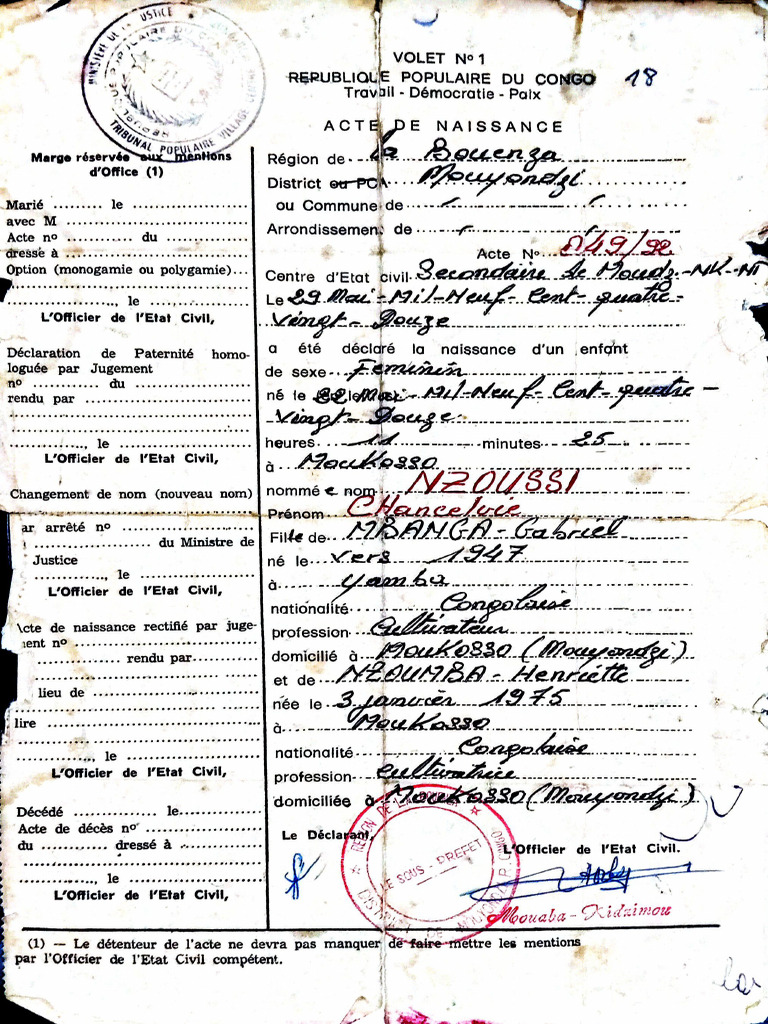 MINISTÈRE DE LA JUSTICE
TRIBUNAL POPULAIRE VILLAGE CENTRE
VOLET Nº 1
REPUBLIQUE POPULAIRE DU CONGO 18
Travail - Démocratie - Paix
ACTE DE NAISSANCE
Marge réservée aux mentions
d'Office (1)
Marié .......... le ..........
avec M ..........
Acte nº .......... du ..........
dressé à ..........
Option (monogamie ou polygamie)...
.........., le ..........
L'Officier de l'Etat Civil,
Déclaration de Paternité homo-
loguée par Jugement
nº .......... du ..........
rendu par ..........
.........., le ..........
L'Officier de l'Etat Civil,
Changement de nom (nouveau nom)
ar arrêté nº ..........
.......... du Ministre de
Justice
.........., le ..........
L'Officier de l'Etat Civil,
Acte de naissance rectifié par juge-
ment nº ..........
.......... rendu par..........
lieu de ..........
lire ..........
.........., le ..........
L'Officier de l'Etat Civil,
Décédé .......... le..........
Acte de décès nº ..........
du .......... dressé à ..........
.........., le ..........
L'Officier de l'Etat Civil,
Région de la Bouenza
District ou PCA Mouyondzi
ou Commune de
Arrondissement de
Acte Nº 049/92
Centre d'Etat civil Secondaire de
Le 29 Mai - Mil-Neuf-Cent-quatre-
Vingt-Douze
a été déclaré la naissance d'un enfant
de sexe Feminin
né le 22 Mai - Mil-Neuf-Cent-quatre-
Vingt-Douze
heures 11 minutes 25
à MouKosso
nommé e nom NZOUSSI
Prénom CHancelvie
Fille de MBANGA-Gabriel
né le vers 1947
à Yamba
nationalité Congolaise
profession Cultivateur
domicilié à MouKosso (Mouyondzi)
et de NZOUMBA-Henriette
née le 3 janvier 1975
à MouKosso
nationalité Congolaise
profession Cultivatrice
domiciliée à MouKosso (Mouyondzi)
Le Déclarant,
L'Officier de l'Etat Civil.
LE SOUS-PREFET
DISTRICT DE MOUYONDZI
Mouaba-Kidzimou
(1) — Le détenteur de l'acte ne devra pas manquer de faire mettre les mentions
par l'Officier de l'Etat Civil compétent.